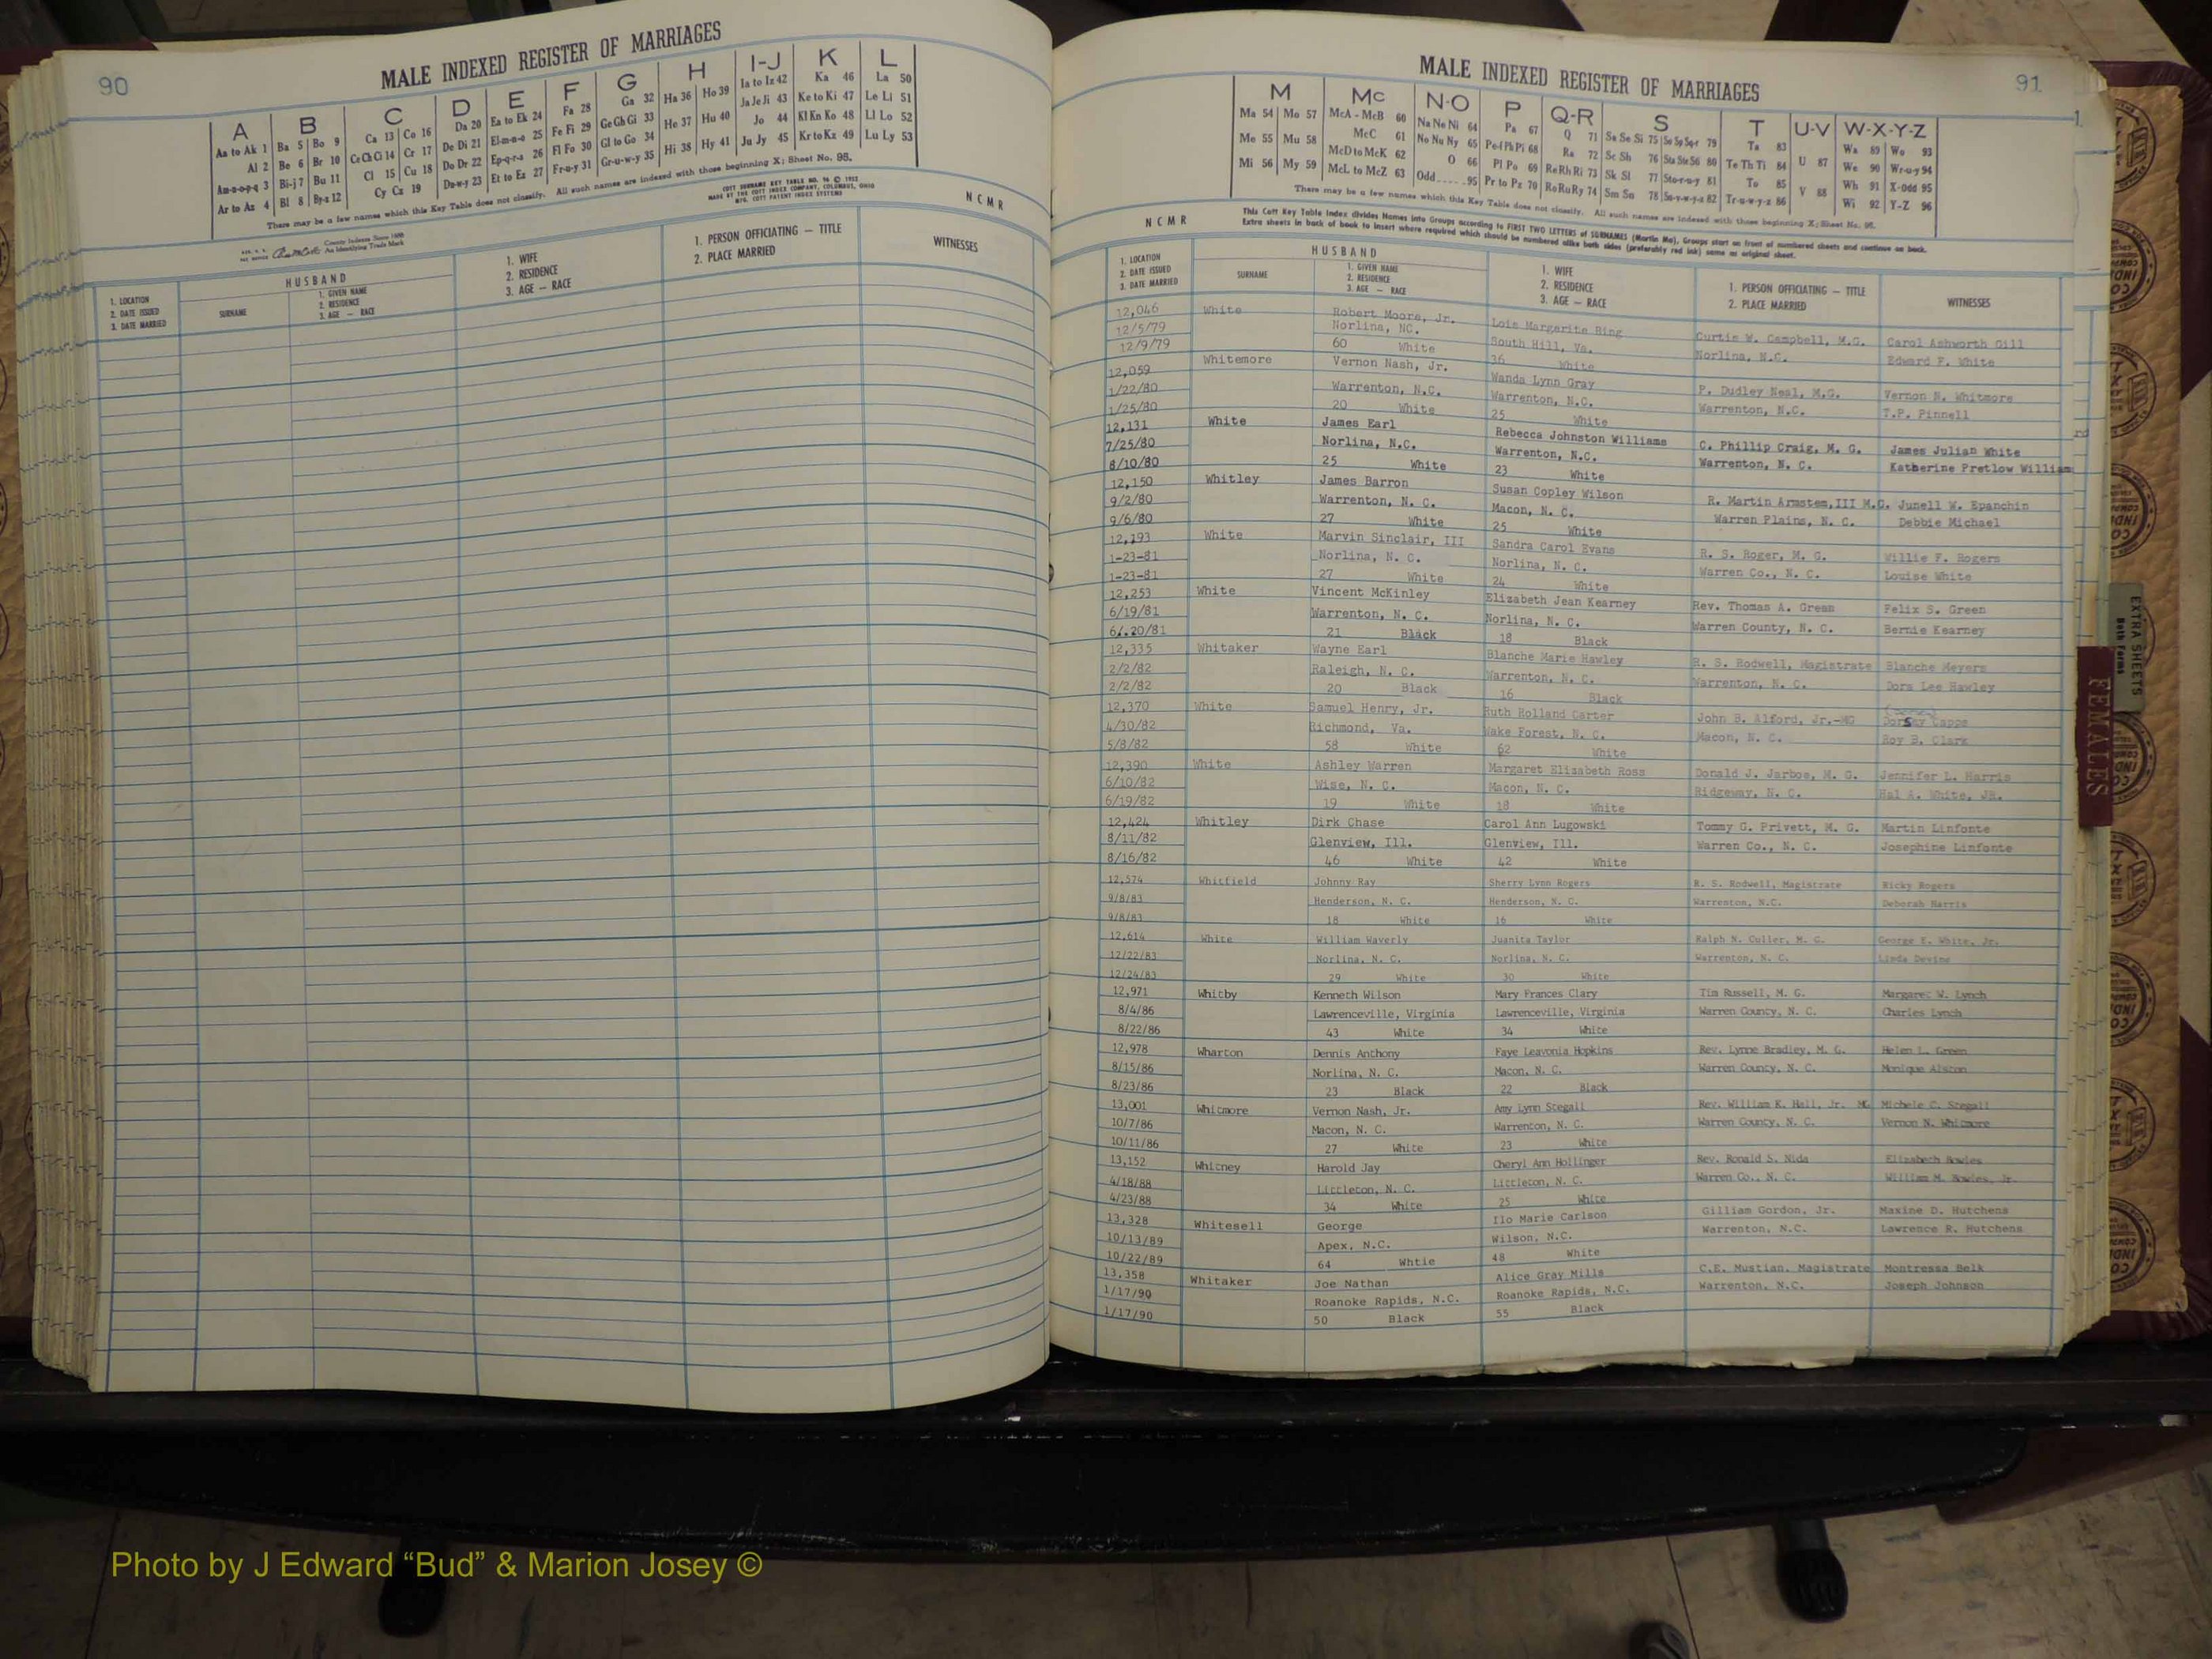 90
MALE INDEXED REGISTER OF MARRIAGES
A B C D E F G H I-J K L
Aa to Ak 1 Ba 5 Bo 9 Ca 13 Co 16 Da 20 Ea to Ek 24 Fa 28 Ga 32 Ha 36 Ho 39 Ia to Iz 42 Ka 46 La 50
Al 2 Be 6 Br 10 Ce Ch Ci 14 Cr 17 De Di 21 El-m-n-o 25 Fe Fi 29 Ge Gh Gi 33 He 37 Hu 40 Ja Je Ji 43 Ke to Ki 47 Le Li 51
Am-n-o-p-q 3 Bi-j 7 Bu 11 Cl 15 Cu 18 Do Dr 22 Ep-q-r-s 26 Fl Fo 30 Gl to Go 34 Hi 38 Hy 41 Jo 44 Kl Kn Ko 48 Ll Lo 52
Ar to Az 4 Bl 8 By-z 12 Cy Cz 19 Du-w-y 23 Et to Ez 27 Fr-u-y 31 Gr-u-w-y 35 Ju Jy 45 Kr to Kz 49 Lu Ly 53
There may be a few names which this Key Table does not classify. All such names are indexed with those beginning X; Sheet No. 95.
COTT SURNAME KEY TABLE NO. 96 © 1952
MADE BY THE COTT INDEX COMPANY, COLUMBUS, OHIO
MFG. COTT PATENT INDEX SYSTEMS
County Indexes Since 1888
An Identifying Trade Mark
N C M R
1. LOCATION
2. DATE ISSUED
3. DATE MARRIED
HUSBAND
SURNAME
1. GIVEN NAME
2. RESIDENCE
3. AGE — RACE
1. WIFE
2. RESIDENCE
3. AGE — RACE
1. PERSON OFFICIATING — TITLE
2. PLACE MARRIED
WITNESSES
MALE INDEXED REGISTER OF MARRIAGES
91
M Mc N-O P Q-R S T U-V W-X-Y-Z
Ma 54 Mo 57 McA - McB 60 Na Ne Ni 64 Pa 67 Q 71 Sa Se Si 75 So Sp Sq-r 79 Ta 83 Wa 89 Wo 93
Me 55 Mu 58 McC 61 No Nu Ny 65 Pe-f Ph Pi 68 Ra 72 Sc Sh 76 Sta Ste S6 80 Te Th Ti 84 U 87 We 90 Wr-u-y 94
Mi 56 My 59 McD to McK 62 O 66 Pl Po 69 Re Rh Ri 73 Sk Sl 77 Sto-r-u-y 81 To 85 Wh 91 X-Odd 95
McL to McZ 63 Odd 95 Pr to Pz 70 Ro Ru Ry 74 Sm Sn 78 Su-v-w-y-z 82 Tr-u-w-y-z 86 V 88 Wi 92 Y-Z 96
There may be a few names which this Key Table does not classify. All such names are indexed with those beginning X; Sheet No. 95.
This Cott Key Table Index divides Names into Groups according to FIRST TWO LETTERS of SURNAMES (Martin Ma), Groups start on front of numbered sheets and continue on back.
Extra sheets in back of book to insert where required which should be numbered alike both sides (preferably red ink) same as original sheet.
N C M R
1. LOCATION
2. DATE ISSUED
3. DATE MARRIED
HUSBAND
SURNAME
1. GIVEN NAME
2. RESIDENCE
3. AGE — RACE
1. WIFE
2. RESIDENCE
3. AGE — RACE
1. PERSON OFFICIATING — TITLE
2. PLACE MARRIED
WITNESSES
12,046 White Robert Moore, Jr. Lois Margarite Ring Curtis W. Campbell, M.G. Carol Ashworth Gill
12/5/79 Norlina, NC. South Hill, Va. Norlina, N.C. Edward F. White
12/9/79 60 White 36 White
12,059 Whitemore Vernon Nash, Jr. Wanda Lynn Gray P. Dudley Neal, M.G. Vernon N. Whitmore
1/22/80 Warrenton, N.C. Warrenton, N.C. Warrenton, N.C. T.P. Pinnell
1/25/80 20 White 25 White
12,131 White James Earl Rebecca Johnston Williams C. Phillip Craig, M. G. James Julian White
7/25/80 Norlina, N.C. Warrenton, N.C. Warrenton, N. C. Katherine Pretlow William
8/10/80 25 White 23 White
12,150 Whitley James Barron Susan Copley Wilson R. Martin Armstem,III M.G. Junell W. Epanchin
9/2/80 Warrenton, N. C. Macon, N. C. Warren Plains, N. C. Debbie Michael
9/6/80 27 White 25 White
12,193 White Marvin Sinclair, III Sandra Carol Evans R. S. Roger, M. G. Willie F. Rogers
1-23-81 Norlina, N. C. Norlina, N. C. Warren Co., N. C. Louise White
1-23-81 27 White 24 White
12,253 White Vincent McKinley Elizabeth Jean Kearney Rev. Thomas A. Green Felix S. Green
6/19/81 Warrenton, N. C. Norlina, N. C. Warren County, N. C. Bernie Kearney
6/.20/81 21 Black 18 Black
12,335 Whitaker Wayne Earl Blanche Marie Hawley R. S. Rodwell, Magistrate Blanche Meyers
2/2/82 Raleigh, N. C. Warrenton, N. C. Warrenton, N. C. Dora Lee Hawley
2/2/82 20 Black 16 Black
12,370 White Samuel Henry, Jr. Ruth Holland Carter John B. Alford, Jr.-MG Dorsey Capps
4/30/82 Richmond, Va. Wake Forest, N. C. Macon, N. C. Roy B. Clark
5/8/82 58 White 62 White
12,390 White Ashley Warren Margaret Elizabeth Ross Donald J. Jarboe, M. G. Jennifer L. Harris
6/10/82 Wise, N. C. Macon, N. C. Ridgeway, N. C. Hal A. White, JR.
6/19/82 19 White 18 White
12,424 Whitley Dirk Chase Carol Ann Lugowski Tommy G. Privett, M. G. Martin Linfonte
8/11/82 Glenview, Ill. Glenview, Ill. Warren Co., N. C. Josephine Linfonte
8/16/82 46 White 42 White
12,574 Whitfield Johnny Ray Sherry Lynn Rogers R. S. Rodwell, Magistrate Ricky Rogers
9/8/83 Henderson, N. C. Henderson, N. C. Warrenton, N.C. Deborah Harris
9/8/83 18 White 16 White
12,614 White William Waverly Juanita Taylor Ralph N. Culler, M. G. George E. White, Jr.
12/22/83 Norlina, N. C. Norlina, N. C. Warrenton, N. C. Linda Devine
12/24/83 29 White 30 White
12,971 Whitby Kenneth Wilson Mary Frances Clary Tim Russell, M. G. Margaret W. Lynch
8/4/86 Lawrenceville, Virginia Lawrenceville, Virginia Warren County, N. C. Charles Lynch
8/22/86 43 White 34 White
12,978 Wharton Dennis Anthony Faye Leavonia Hopkins Rev. Lynne Bradley, M. G. Helen L. Green
8/15/86 Norlina, N. C. Macon, N. C. Warren County, N. C. Monique Alston
8/23/86 23 Black 22 Black
13,001 Whitmore Vernon Nash, Jr. Amy Lynn Stegall Rev. William K. Hall, Jr. MG Michele C. Stegall
10/7/86 Macon, N. C. Warrenton, N. C. Warren County, N. C. Vernon N. Whitmore
10/11/86 27 White 23 White
13,152 Whitney Harold Jay Cheryl Ann Hollinger Rev. Ronald S. Nida Elizabeth Bowles
4/18/88 Littleton, N. C. Littleton, N. C. Warren Co., N. C. William M. Bowles, Jr.
4/23/88 34 White 25 White
13,328 Whitesell George Ilo Marie Carlson Gilliam Gordon, Jr. Maxine D. Hutchens
10/13/89 Apex, N.C. Wilson, N.C. Warrenton, N.C. Lawrence R. Hutchens
10/22/89 64 Whtie 48 White
13,358 Whitaker Joe Nathan Alice Gray Mills C.E. Mustian, Magistrate Montressa Belk
1/17/90 Roanoke Rapids, N.C. Roanoke Rapids, N.C. Warrenton, N.C. Joseph Johnson
1/17/90 50 Black 55 Black
EXTRA SHEETS
Both Forms
FEMALES
Photo by J Edward “Bud” & Marion Josey ©